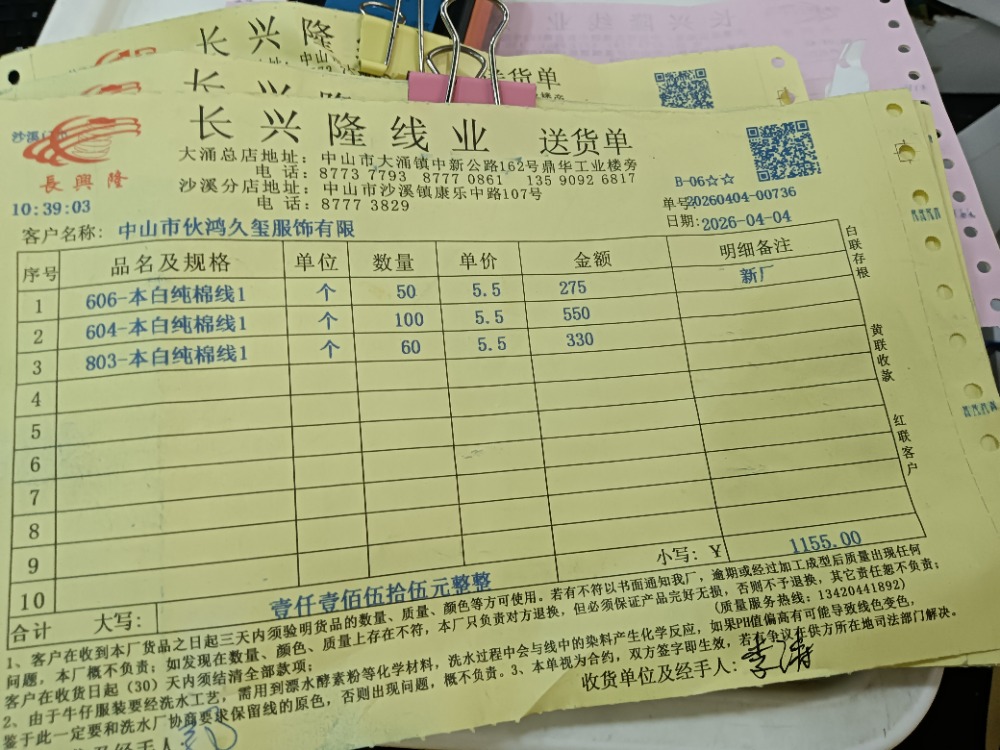 长兴隆
长兴隆
送货单
長興隆
长兴隆线业 送货单
大涌总店地址：中山市大涌镇中新公路162号鼎华工业楼旁
电话：8773 7793 8777 0861 135 9092 6817
沙溪分店地址：中山市沙溪镇康乐中路107号
电话：8777 3829
B-06☆☆
单号:20260404-00736
日期:2026-04-04
10:39:03
客户名称: 中山市伙鸿久玺服饰有限
序号 品名及规格 单位 数量 单价 金额 明细备注
1 606-本白纯棉线1 个 50 5.5 275 新厂
2 604-本白纯棉线1 个 100 5.5 550
3 803-本白纯棉线1 个 60 5.5 330
4
5
6
7
8
9
10
合计 大写: 壹仟壹佰伍拾伍元整整 小写: ￥ 1155.00
白联存根
黄联收款
红联客户
1、客户在收到本厂货品之日起三天内须验明货品的数量、质量、颜色等方可使用。若有不符以书面通知我厂，逾期或经过加工成型后质量出现任何
问题，本厂概不负责；如发现在数量、颜色、质量上存在不符，本厂只负责对方退换，但必须保证产品完好无损，否则不予退换，其它责任恕不负责；
客户在收货日起（30）天内须结清全部款项； (质量服务热线：13420441892)
2、由于牛仔服装要经洗水工艺，需用到漂水酵素粉等化学材料，洗水过程中会与线中的染料产生化学反应，如果PH值偏高有可能导致线色变色，
鉴于此一定要和洗水厂协商要求保留线的原色，否则出现问题，概不负责。3、本单视为合约，双方签字即生效，若有争议在供方所在地司法部门解决。
收货单位及经手人: 李涛
及经手人